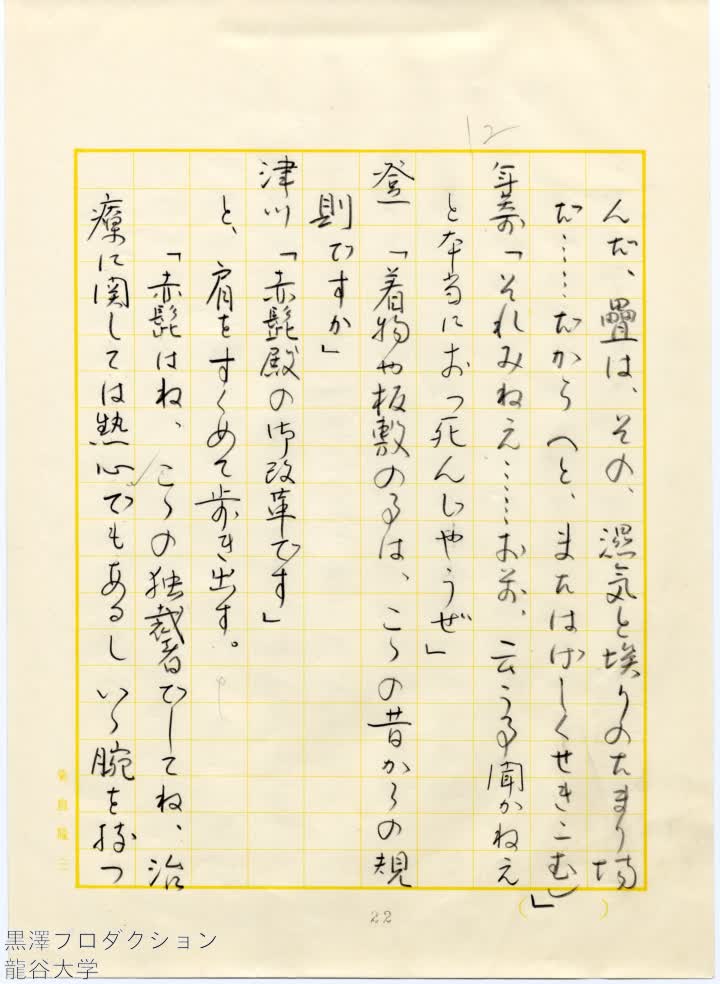 12
んだ、疊は、その、濕気と埃りのたまり場
だ……だから へと、またはげしくせきこむ）」
「それみねえ……お前、云う事聞かねえ
と本当におっ死んじやうぜ」
登 「着物や板敷の事は、こゝの昔からの規
則ですか」
津川 「赤髭殿の御改革です」
と、肩をすくめて歩き出す。
「赤髭はね、こゝの独裁者でしてね、治
療に関しては熱心でもあるし いゝ腕を持つ
22
黒澤プロダクション
龍谷大学